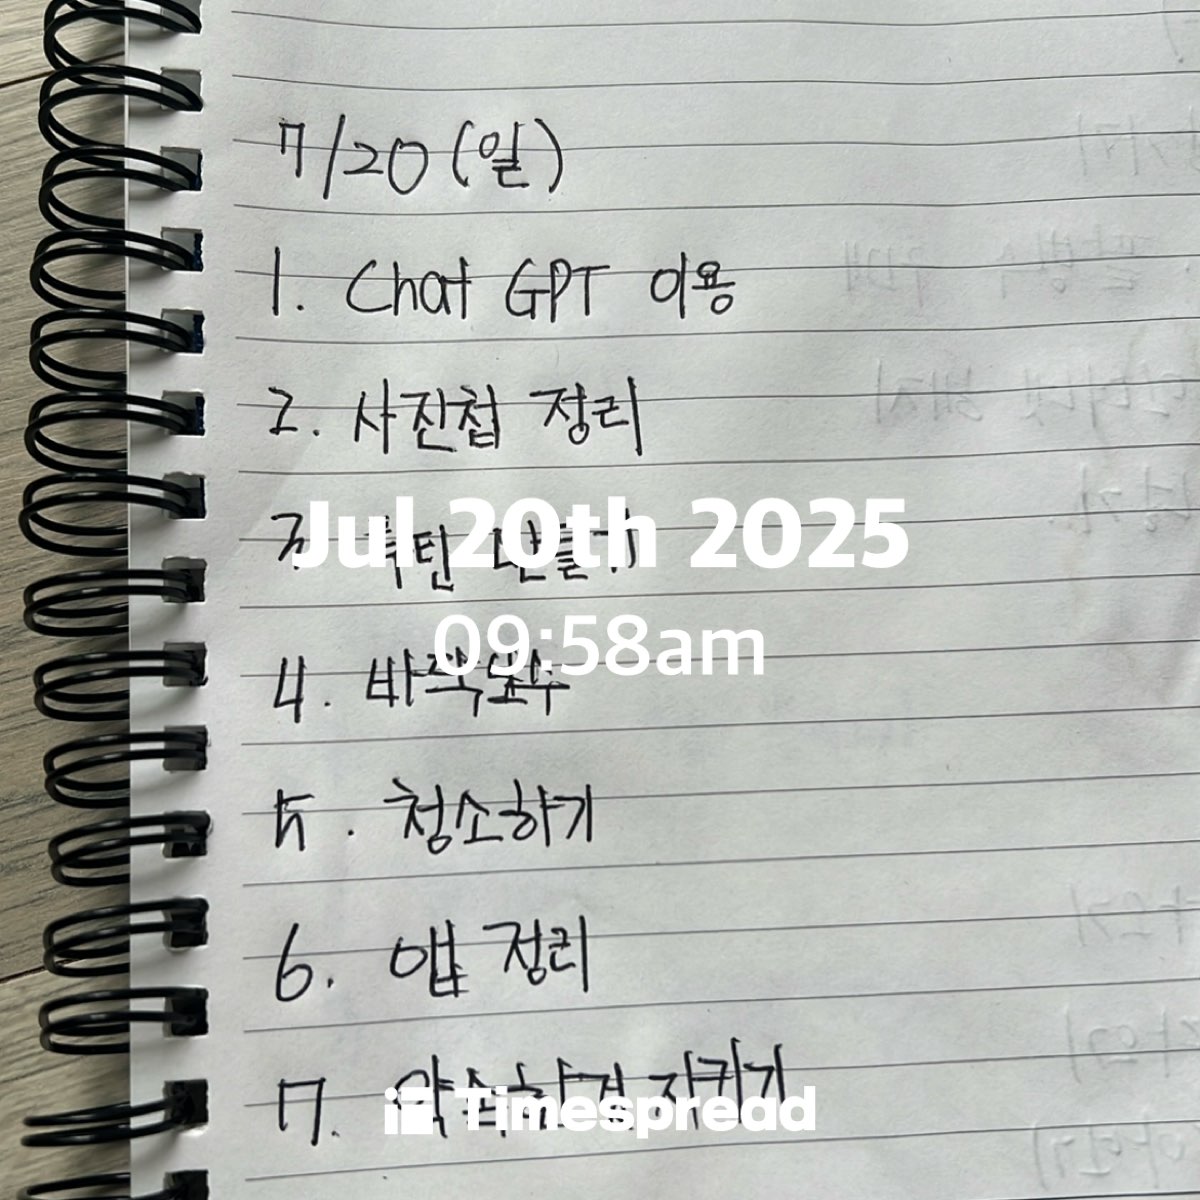 7/20 (일)
1. Chat GPT 이용
2. 사진첩 정리
Jul 20th 2025
3. 루틴 만들기
09:58am
4. 바짝보수
5. 청소하기
6. 앱 정리
7. 약속한 것 지키기
Timespread